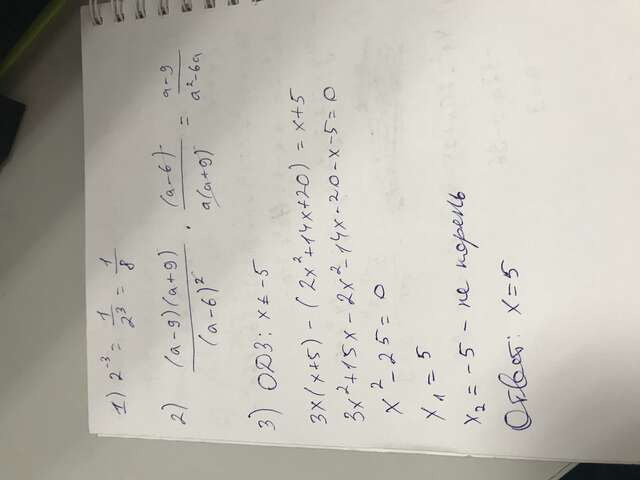 1) 2⁻³ = 1/2³ = 1/8
2) (a-9)(a+9)/(a-6)² · (a-6)/a(a+9) = a-9/a²-6a
3) ОДЗ: x ≠ -5
3x(x+5) - (2x²+14x+20) = x+5
3x²+15x-2x²-14x-20-x-5=0
x²-25=0
x₁=5
x₂=-5 - не корень
Ответ: x=5